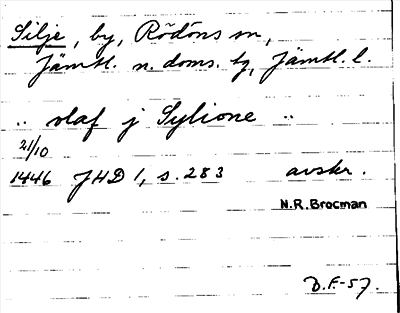 Silje, by, Rödöns sn,
Jämtl. n. doms. tg, Jämtl. l.
.. olaf j Sylione ..
21/10
1446 JHD 1, s. 283 avskr.
N.R.Brocman
D.F.-57.